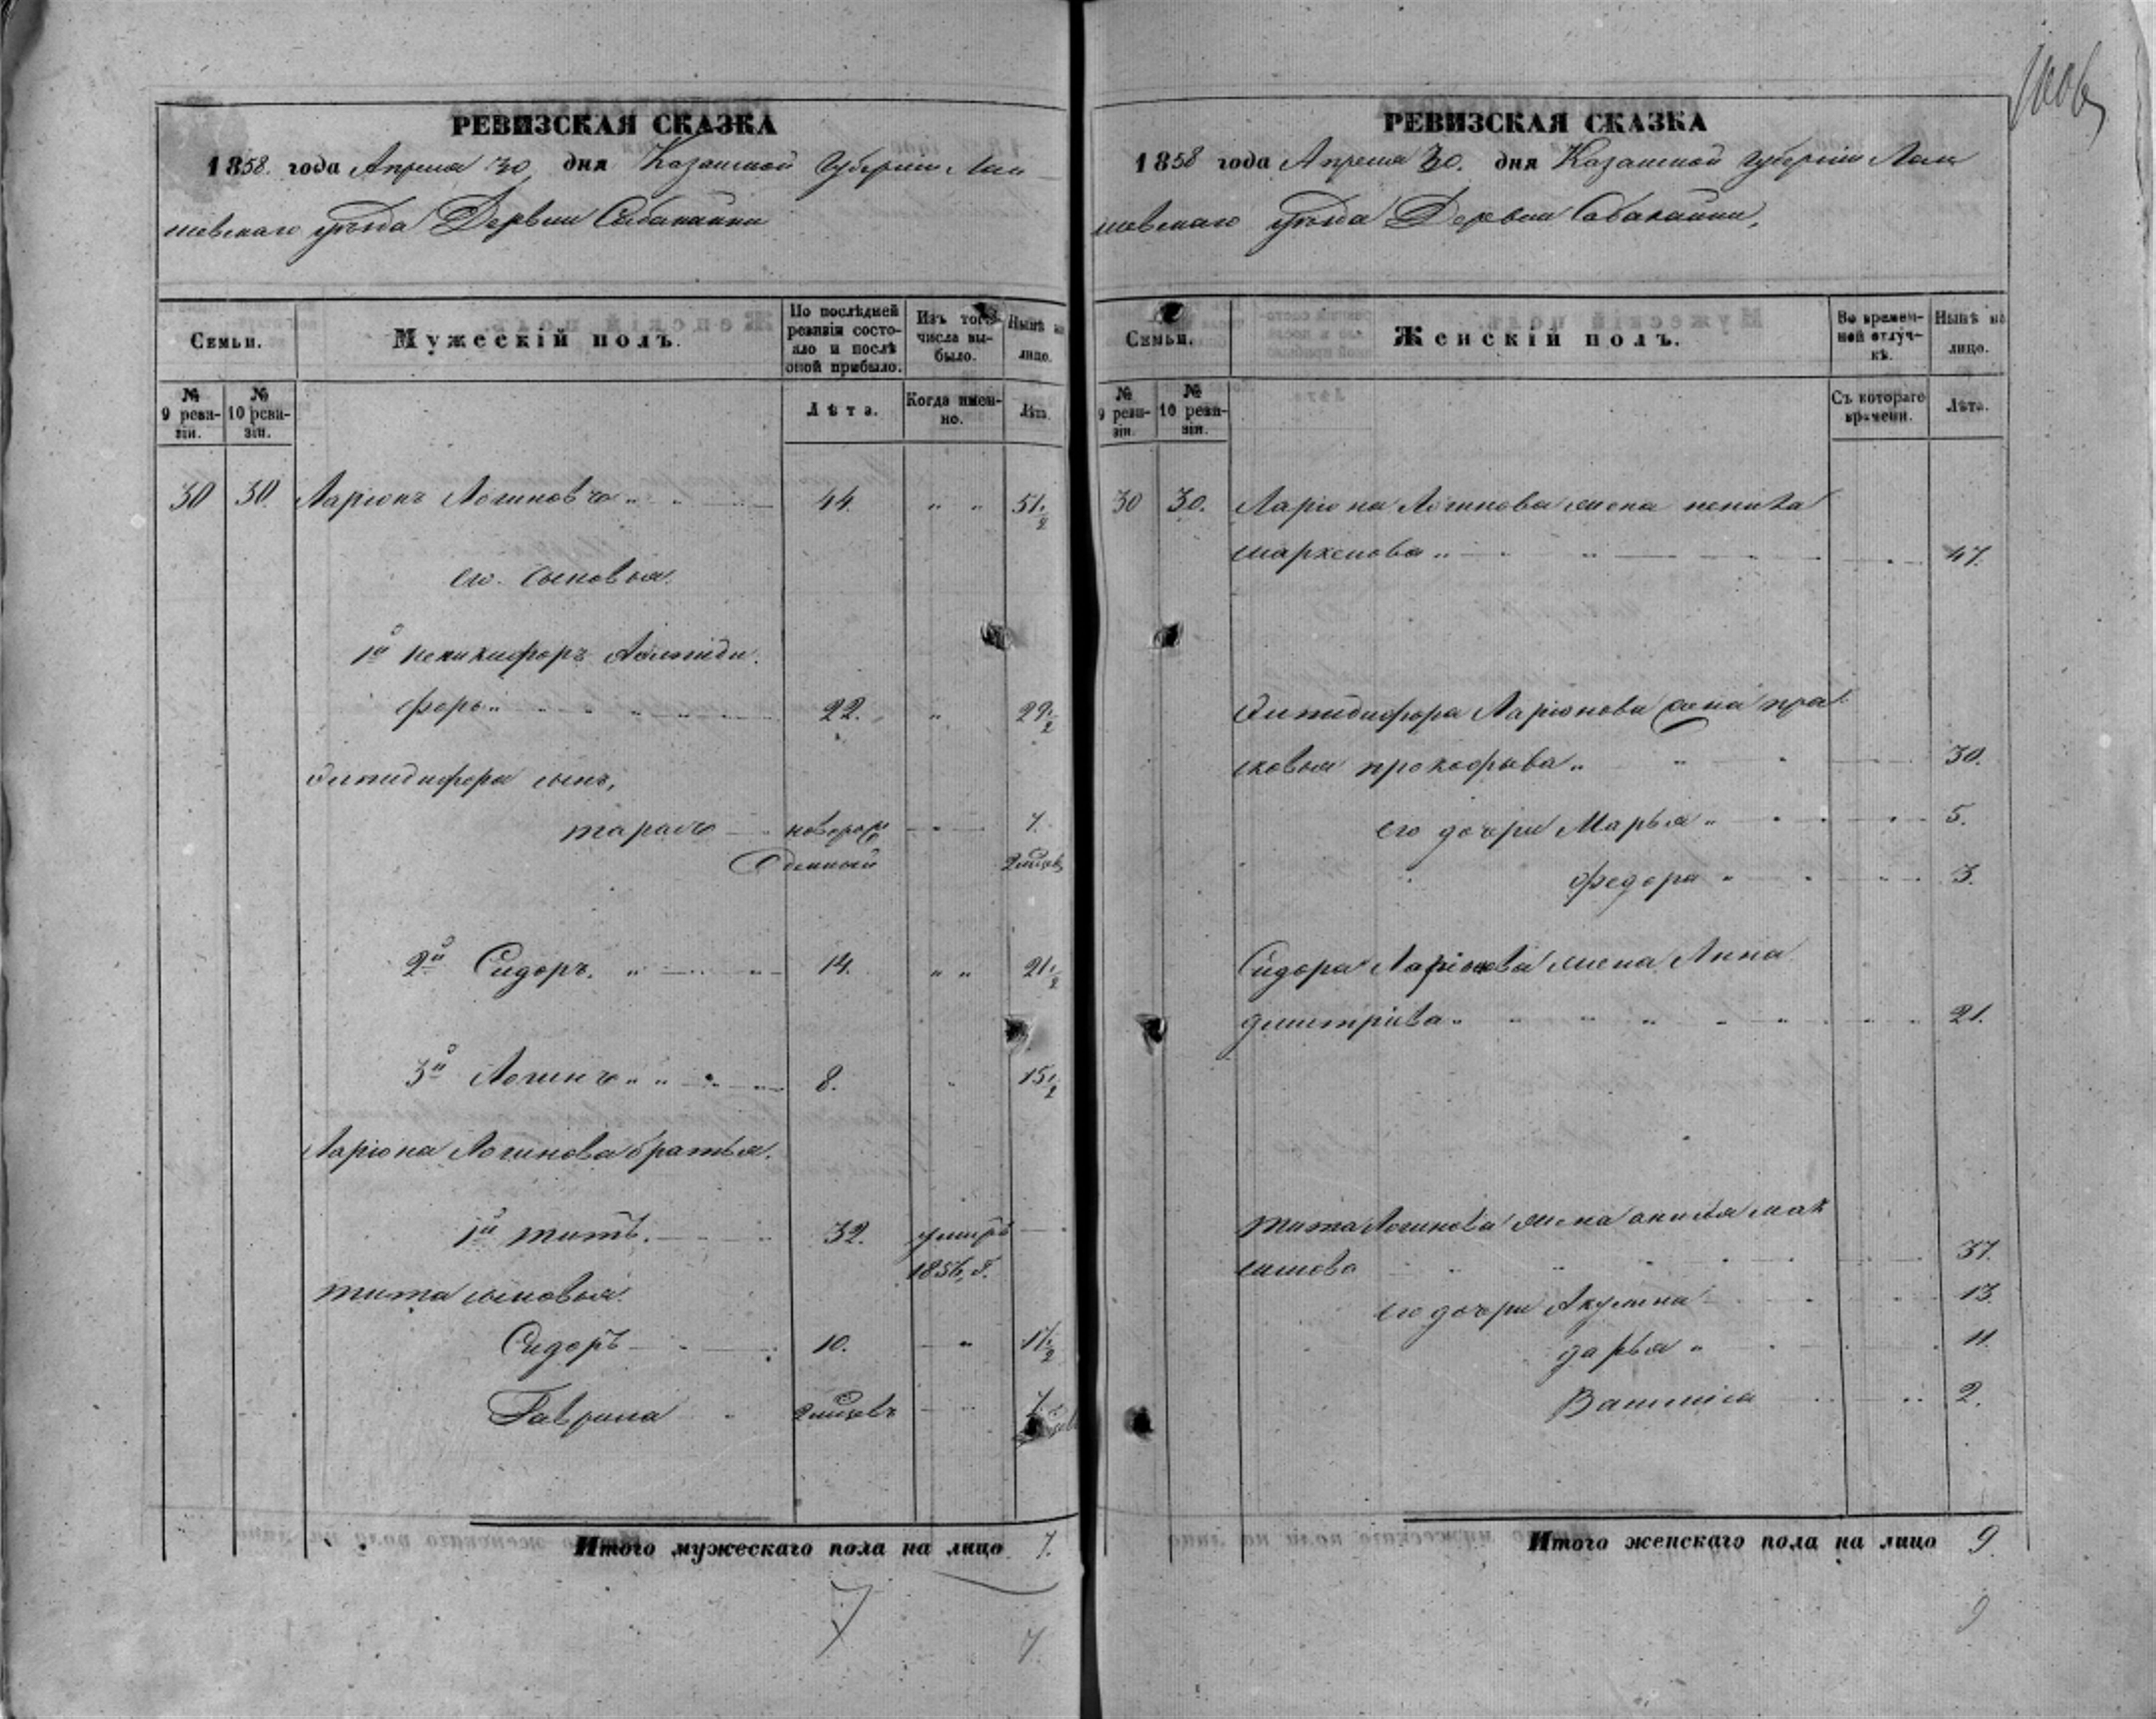 РЕВИЗСКАЯ СКАЗКА
1858. года Апреля 30 дня Казанской Губернии Лаи
шевскаго уѣзда Деревни Сабакайки
Семьи.
Мужескій полъ.
По послѣдней ревизіи состояло и послѣ оной прибыло.
Изъ того числа выбыло.
Нынѣ на лицо.
№ 9 ревизіи.
№ 10 ревизіи.
Лѣта.
Когда именно.
Лѣта.
30 30. Ларіонъ Логиновъ 44. 51 1/2
его сыновья.
1й
форъ 22. 29 1/2
Эпидифора сынъ,
тарасъ новорож 7.
денный
2й Сидоръ. 14. 21 1/2
3й Логинъ 8. 15 1/2
Ларіона Логинова братья.
1й титъ. 32. умеръ
1856, г.
тита сыновья.
Сидоръ 10. 17 1/2
Гаврила 7
Итого мужескаго пола на лицо 7.
7
7.
РЕВИЗСКАЯ СКАЗКА
1858 года Апреля 30. дня Казанской губерніи Лаи
шевскаго уѣзда Деревни Сабакайки,
Семьи.
Женскій полъ.
Во временной отлучкѣ.
Нынѣ на лицо.
№ 9 ревизіи.
№ 10 ревизіи.
Съ котораго времени.
Лѣта.
30 30. Ларіона Логинова жена
47.
Эпидифора Ларіонова жена пра
сковья прокофьева 30.
его дочери Марья 5.
федора 3.
Сидора Ларіонова жена Анна
дмитріева 21.
тита Логинова жена анисья мак
симова 37.
его дочери Акулина 13.
дарья 11.
2.
Итого женскаго пола на лицо 9.
9